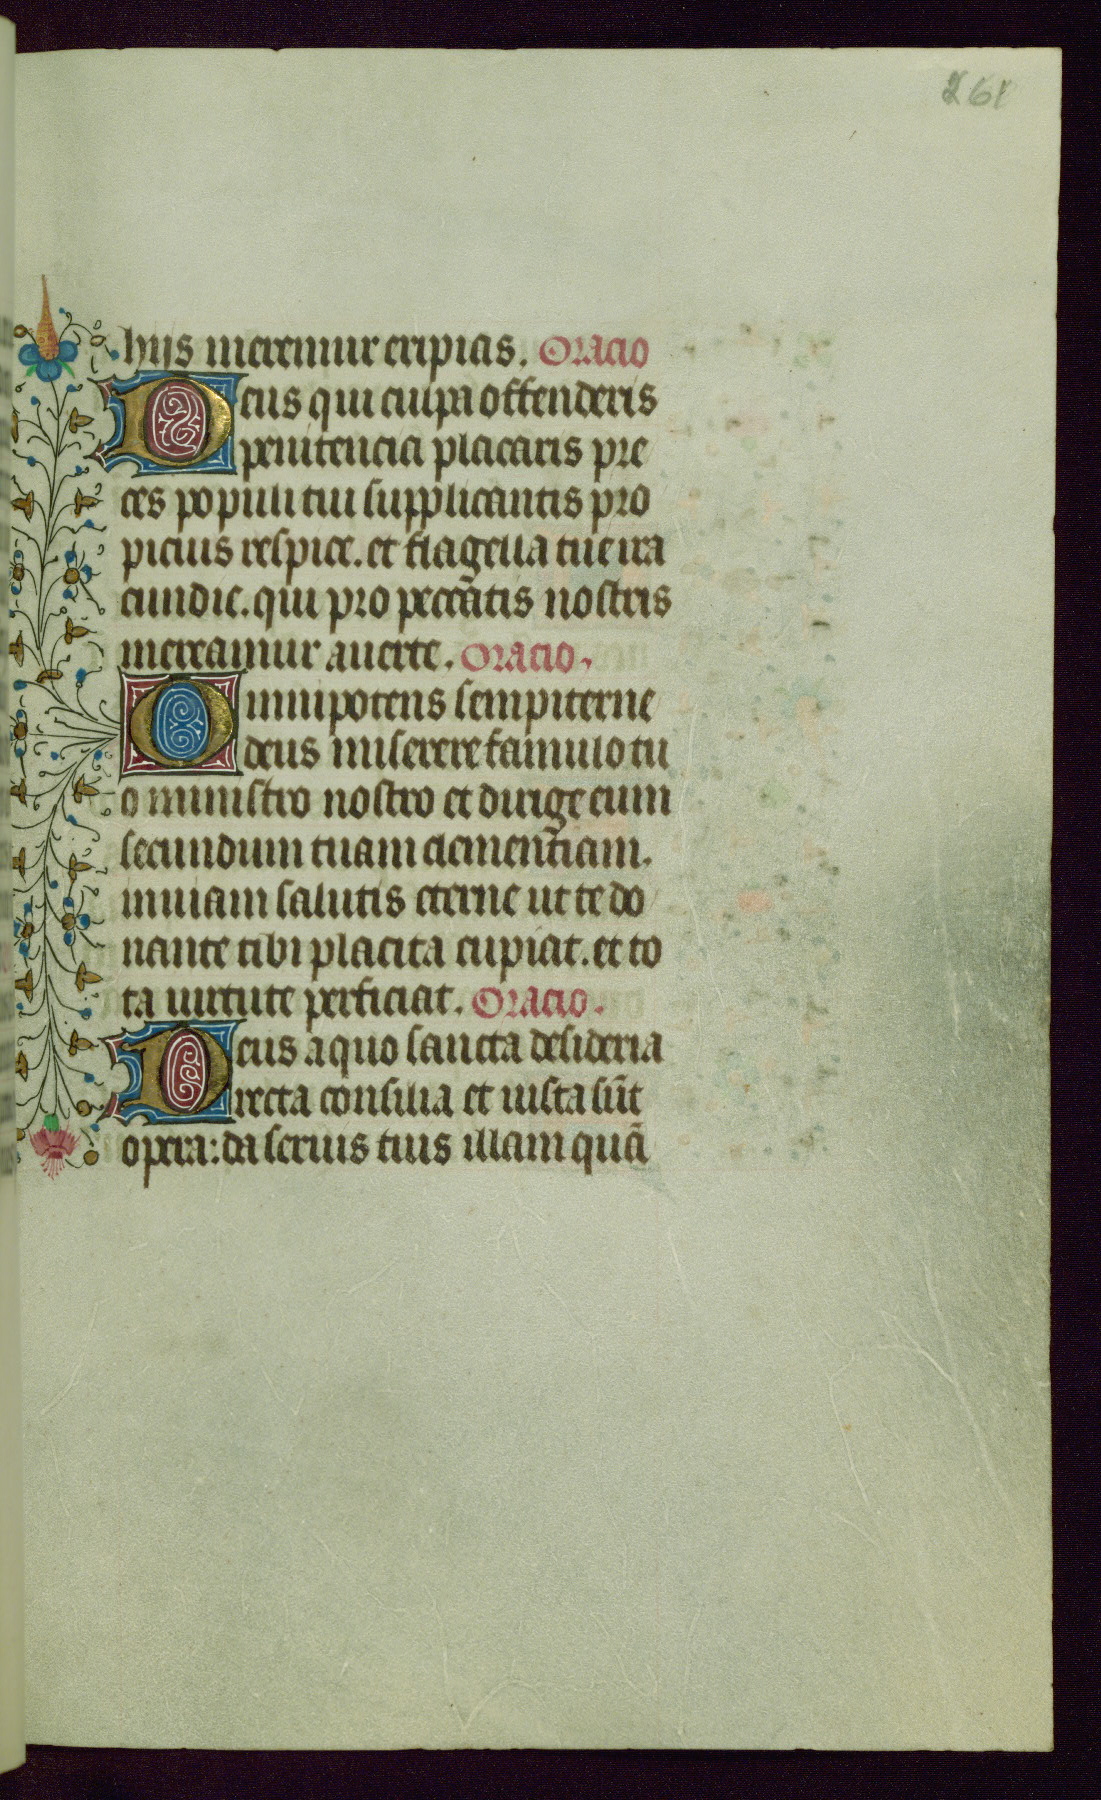 261
hijs meremur eripias. Oracio
Deus qui culpa offenderis
penitencia placaris pre
ces populi tui supplicantis pro
picius respice. et flagella tue ira
cundie. qui pro peccatis nostris
mereamur auerte. Oracio.
Omnipotens sempiterne
deus miserere famulo tu
o ministro nostro et dirige eum
secundum tuam clementiam.
inuiam salutis eterne ut te do
nante tibi placita cupiat. et to
ta uirtute perficiat. Oracio.
Deus a quo sancta desideria
recta consilia et iusta sūt
opera: da seruis tuis illam quā